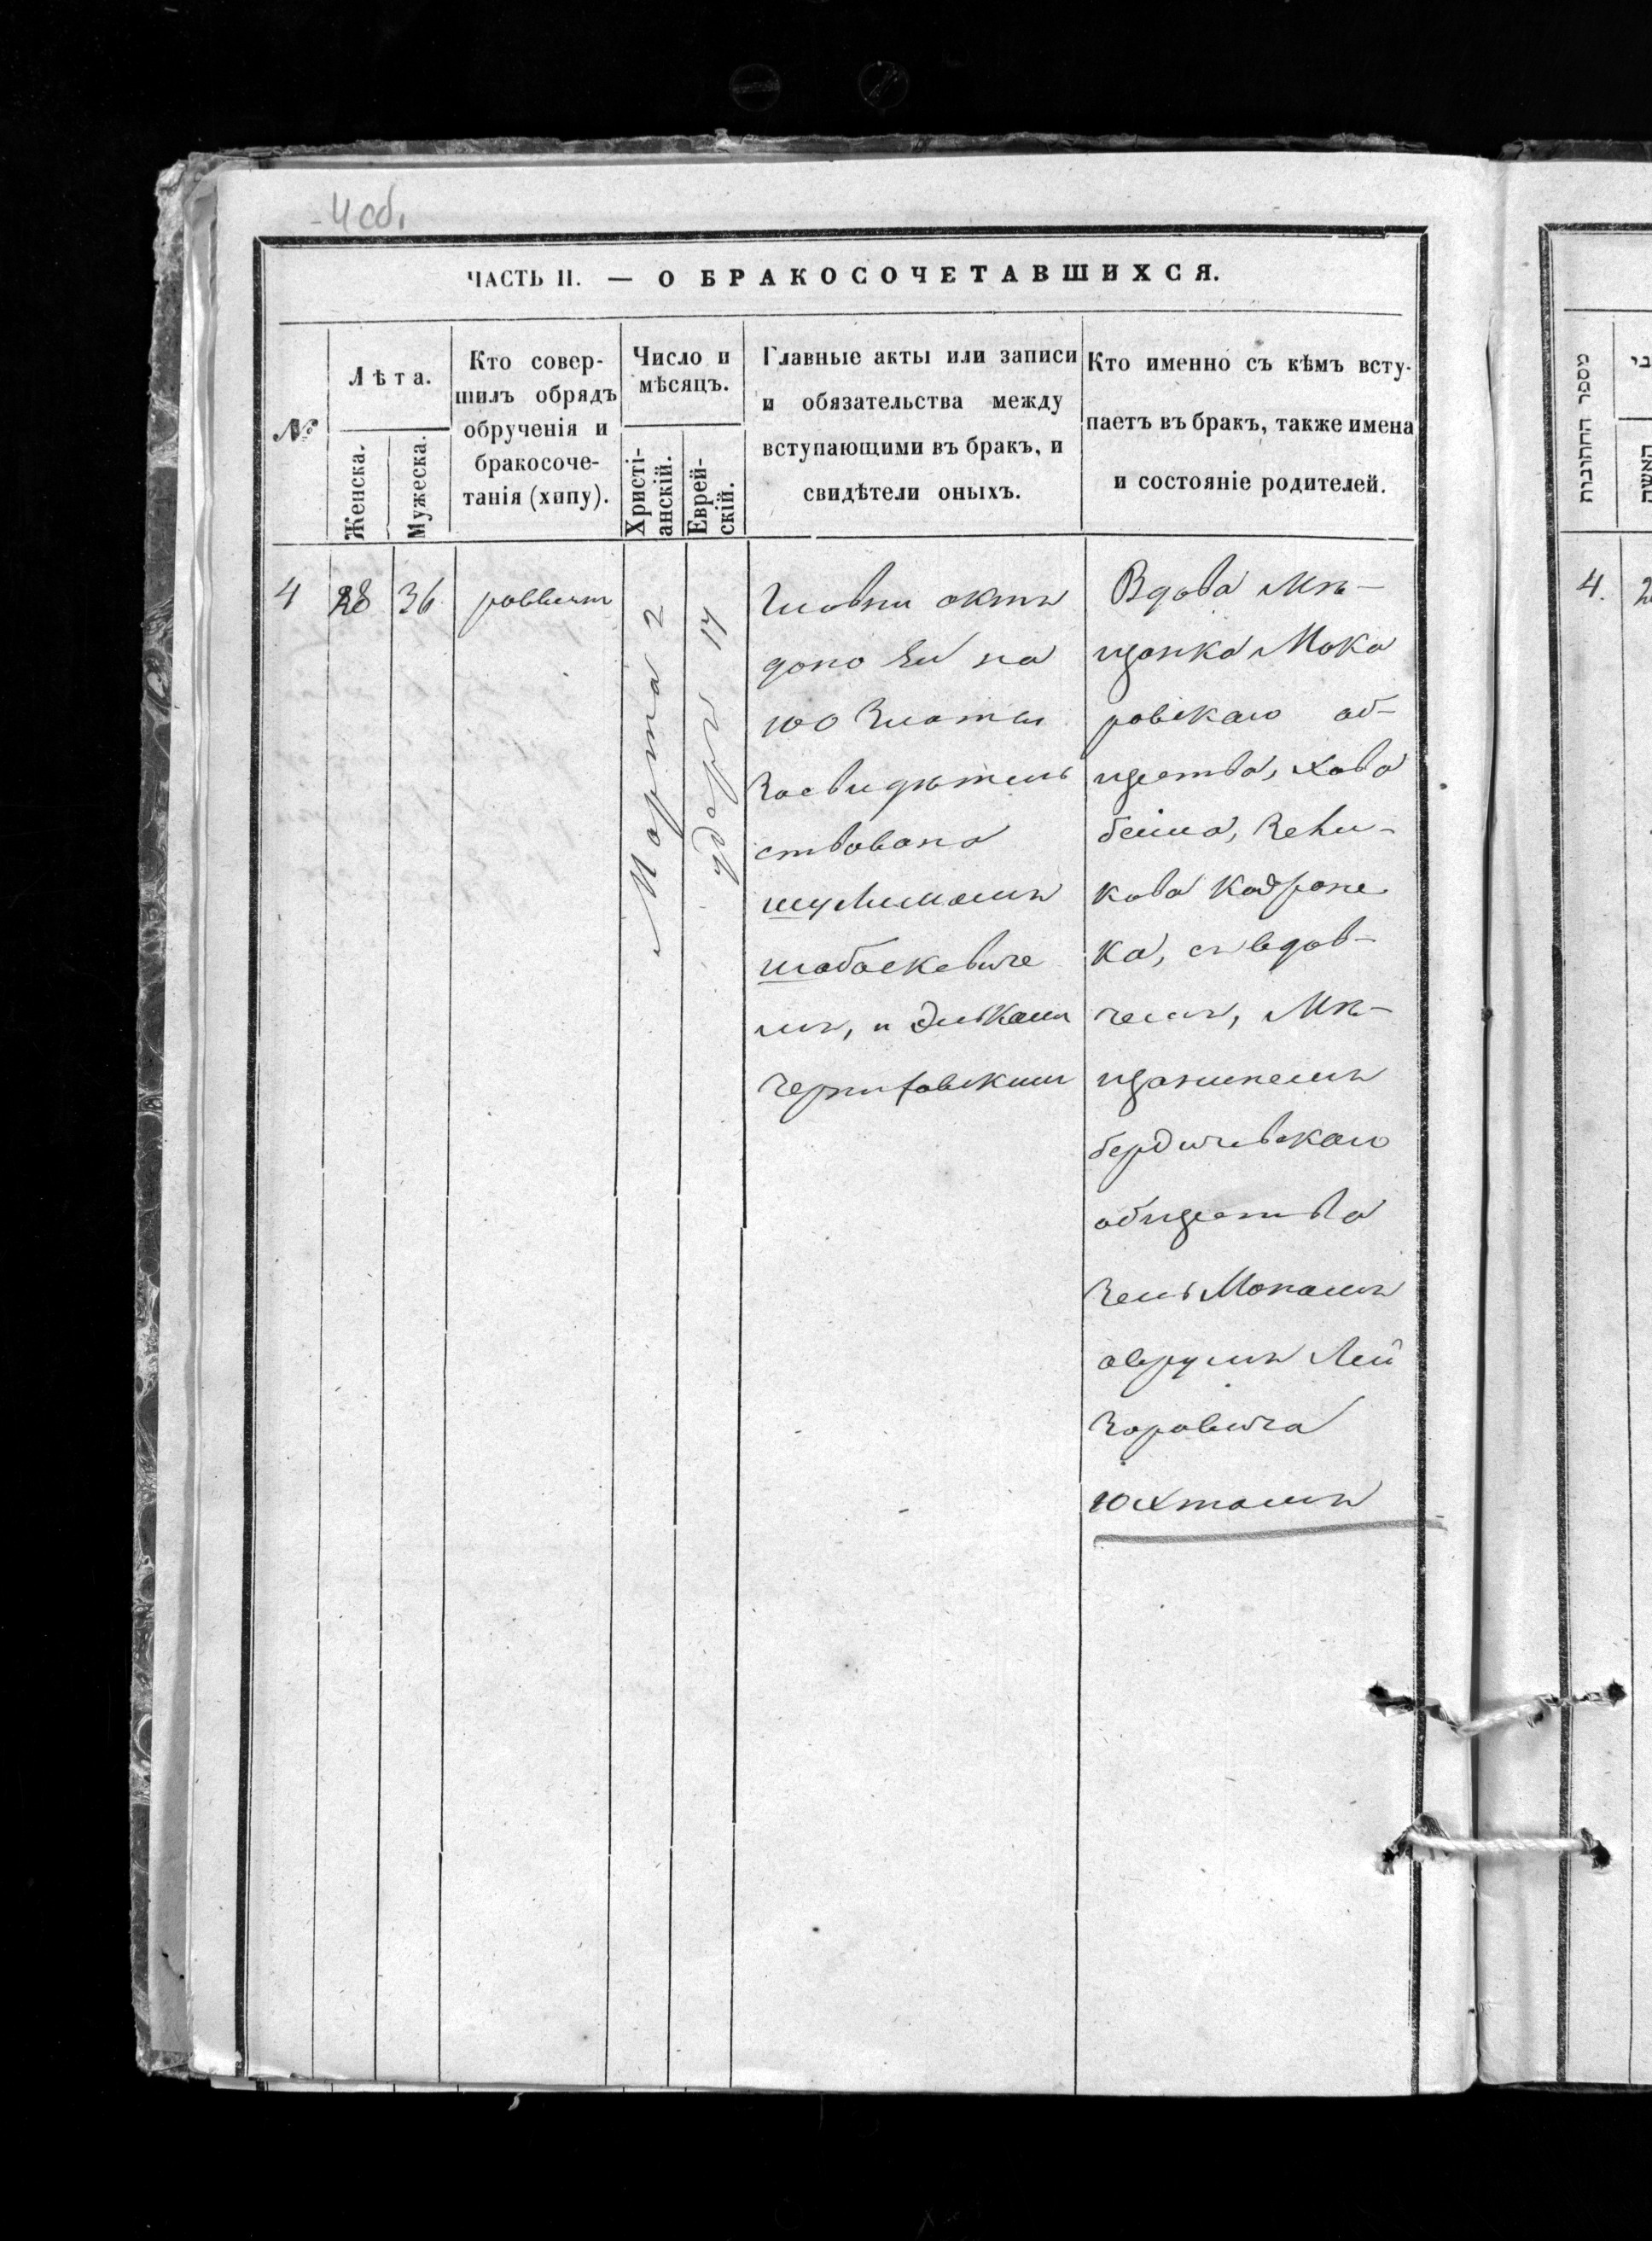 4 об.
ЧАСТЬ II. — О БРАКОСОЧЕТАВШИХСЯ.
№
Лѣта.
Женска.
Мужеска.
Кто совер-
шилъ обрядъ
обрученія и
бракосоче-
танія (хипу).
Число и
мѣсяцъ.
Христі-
анскій.
Еврей-
скій.
Главные акты или записи
и обязательства между
вступающими въ бракъ, и
свидѣтели оныхъ.
Кто именно съ кѣмъ всту-
паетъ въ бракъ, также имена
и состояніе родителей.
4
28
36
раввинъ
Марта 2
адаръ 17
Главни актъ
дано ей на
100 Злоты
Засвидѣтель
ствовано
шулимомъ
шабаскевиче
мъ, и
Вдова Мѣ-
щанка Мака
ровскаго об-
щества, хава
бейла,
кова
ка, съ вдов-
чемъ, Мѣ-
щаниномъ
бердичевскаго
общества
Зель Маномъ
аврумъ Лей
Заровича
Юхтомъ
מספר החתונות
האשה
4.